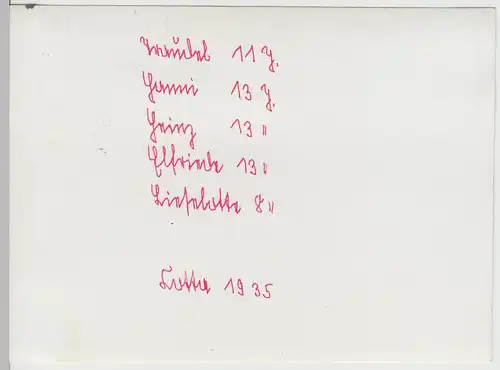 Traudel 11 J.
Hanni 13 J.
Heinz 13 "
Elfriede 13 "
Lieselotte 8 "
Lotte 1935